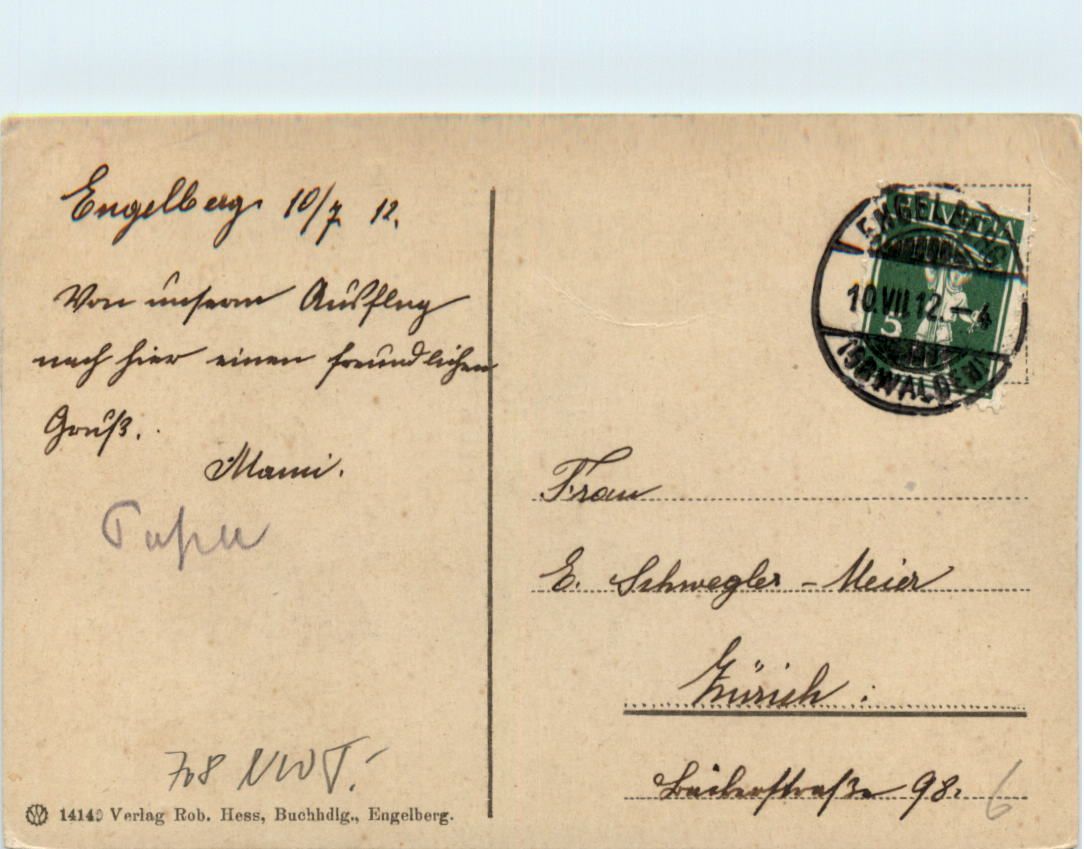 Engelberg 10/7 12.
Von unserm Ausflug
nach hier einen freundlichen
Gruß.
Mami.
Papa
708 NWT.
1414 Verlag Rob. Hess, Buchhdlg., Engelberg.
ENGELBERG
HELVETIA
10.VII.12.–4
5
(OBWALDEN)
Frau
E. Schwegler-Meier
Zürich:
98.
6